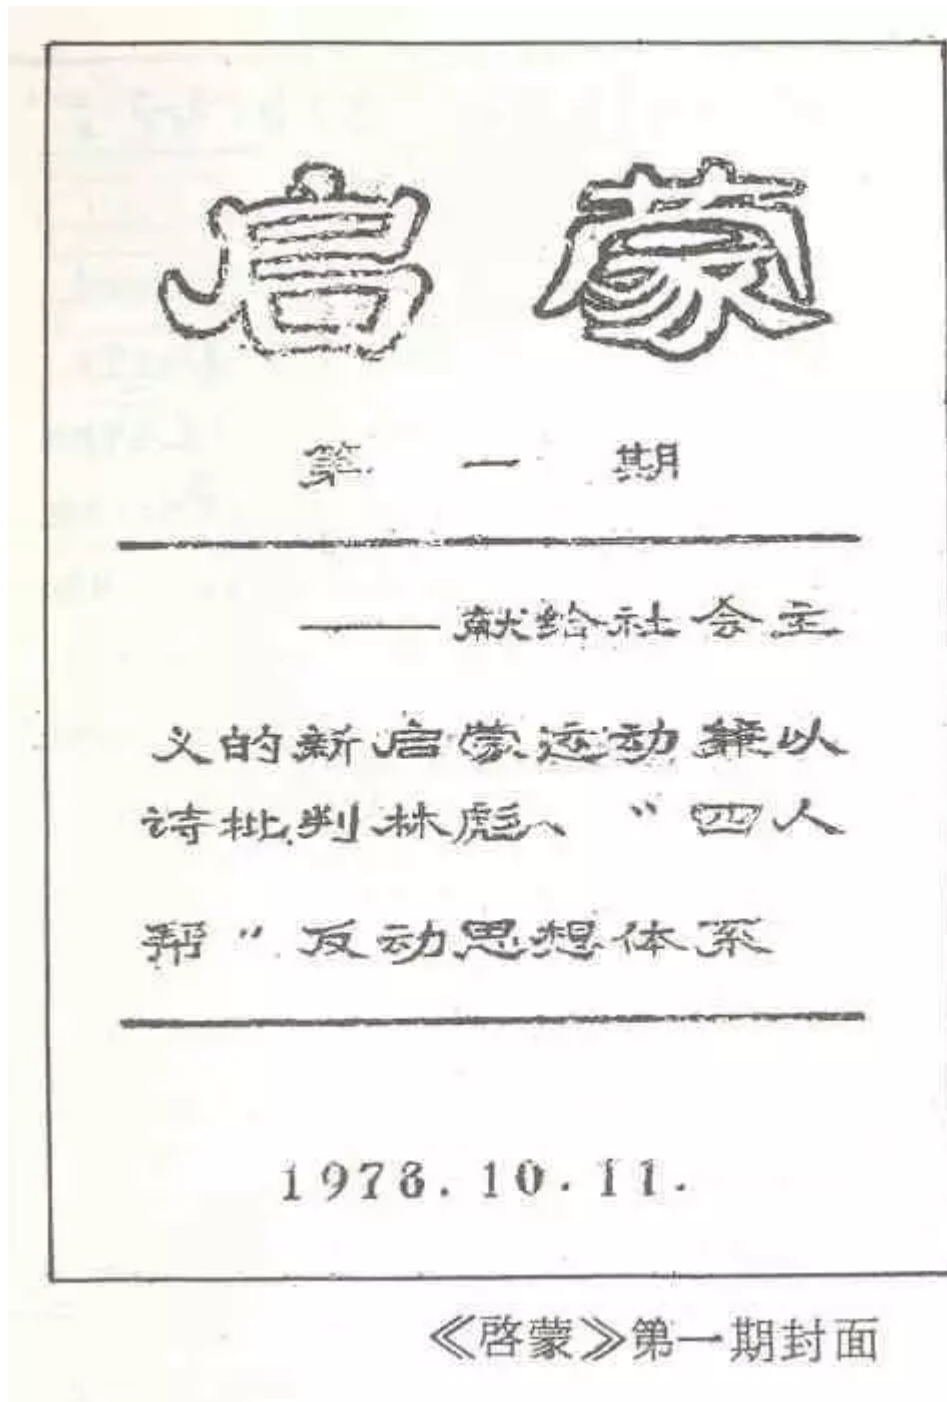 启蒙
第一期
——献给社会主
义的新启蒙运动兼以
诗批判林彪、“四人
帮”反动思想体系
1978.10.11.
《啓蒙》第一期封面